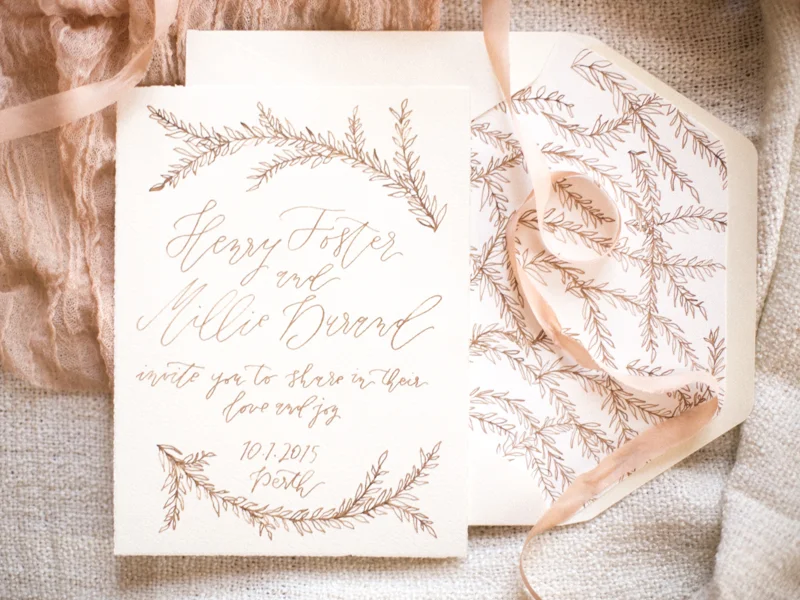 Henry Foster
and
Millie Durand
invite you to share in their
love and joy
10.7.2015
Perth